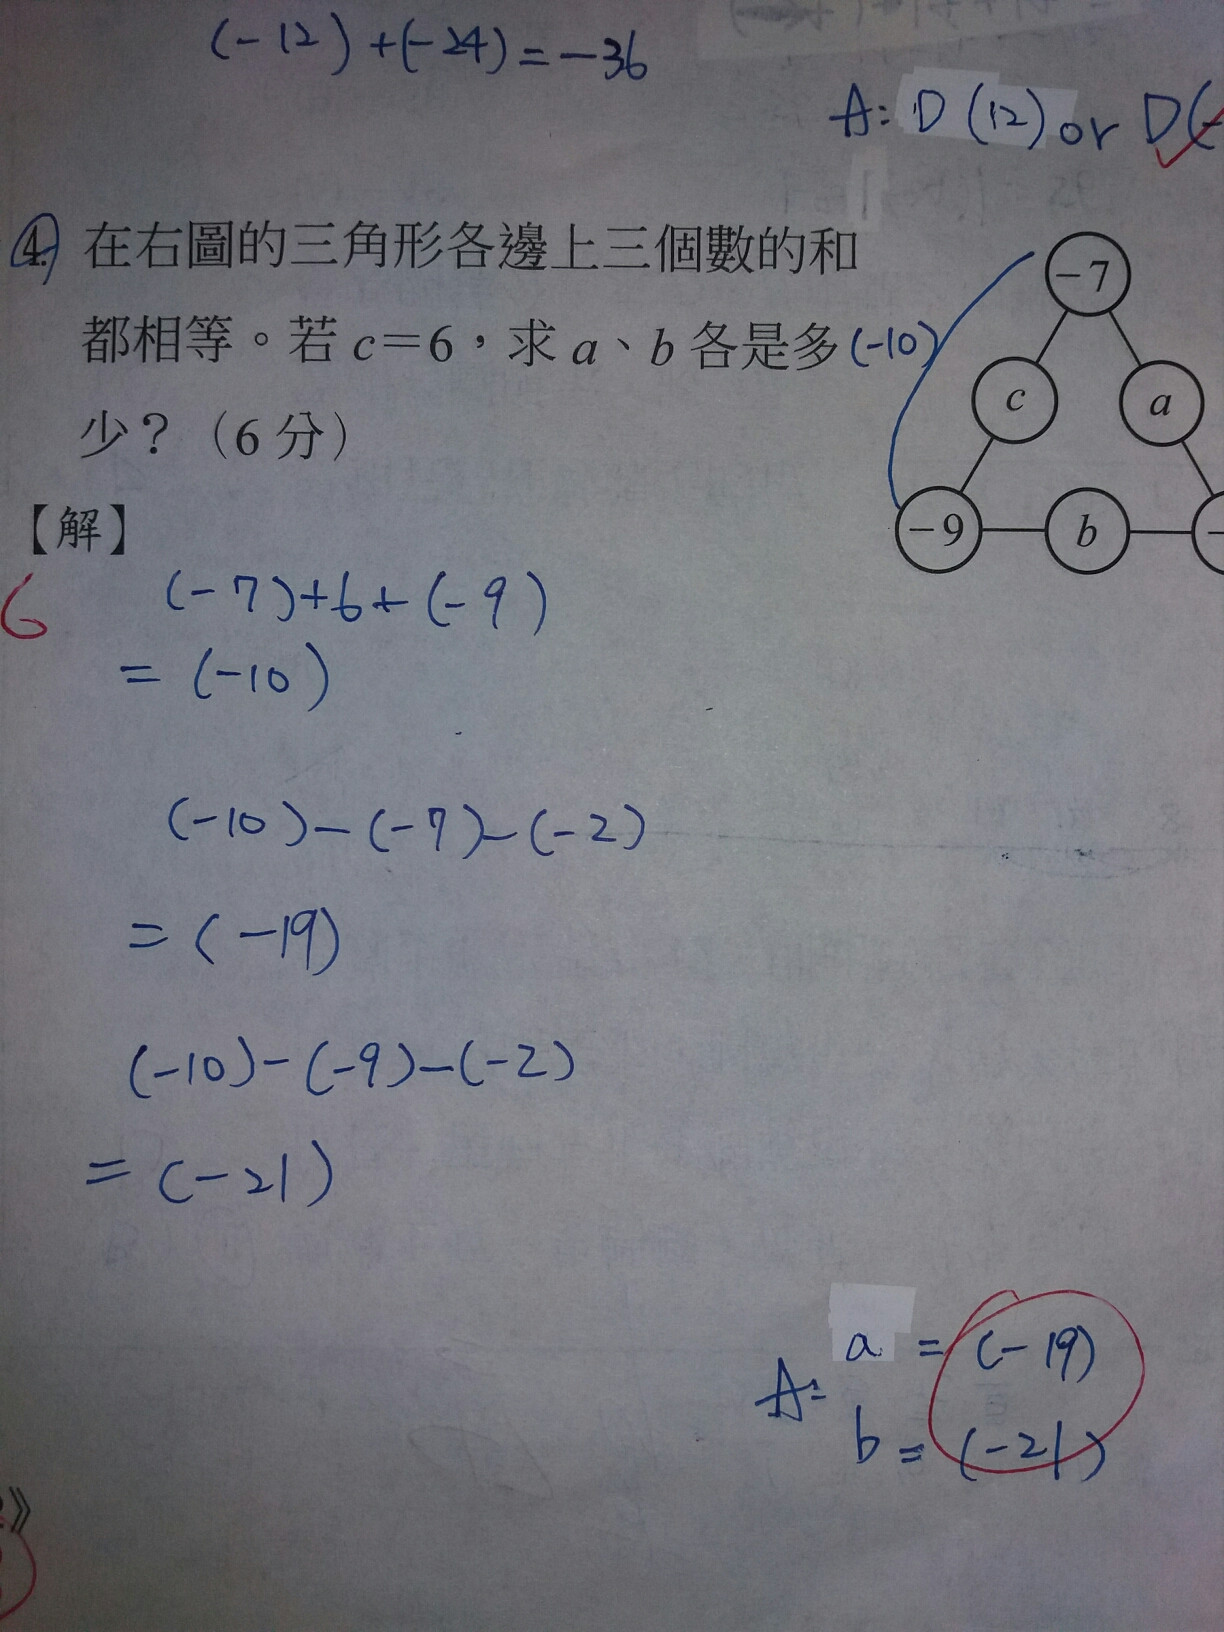 (-12)+(-24)=-36
A: D(12) or D(-
4. 在右圖的三角形各邊上三個數的和
都相等。若c=6，求a、b各是多
少？（6分）
(-10)
-7
c
a
-9
b
-
【解】
6
(-7)+6+(-9)
=(-10)
(-10)-(-7)-(-2)
=(-19)
(-10)-(-9)-(-2)
=(-21)
A: a=(-19)
b=(-21)
》